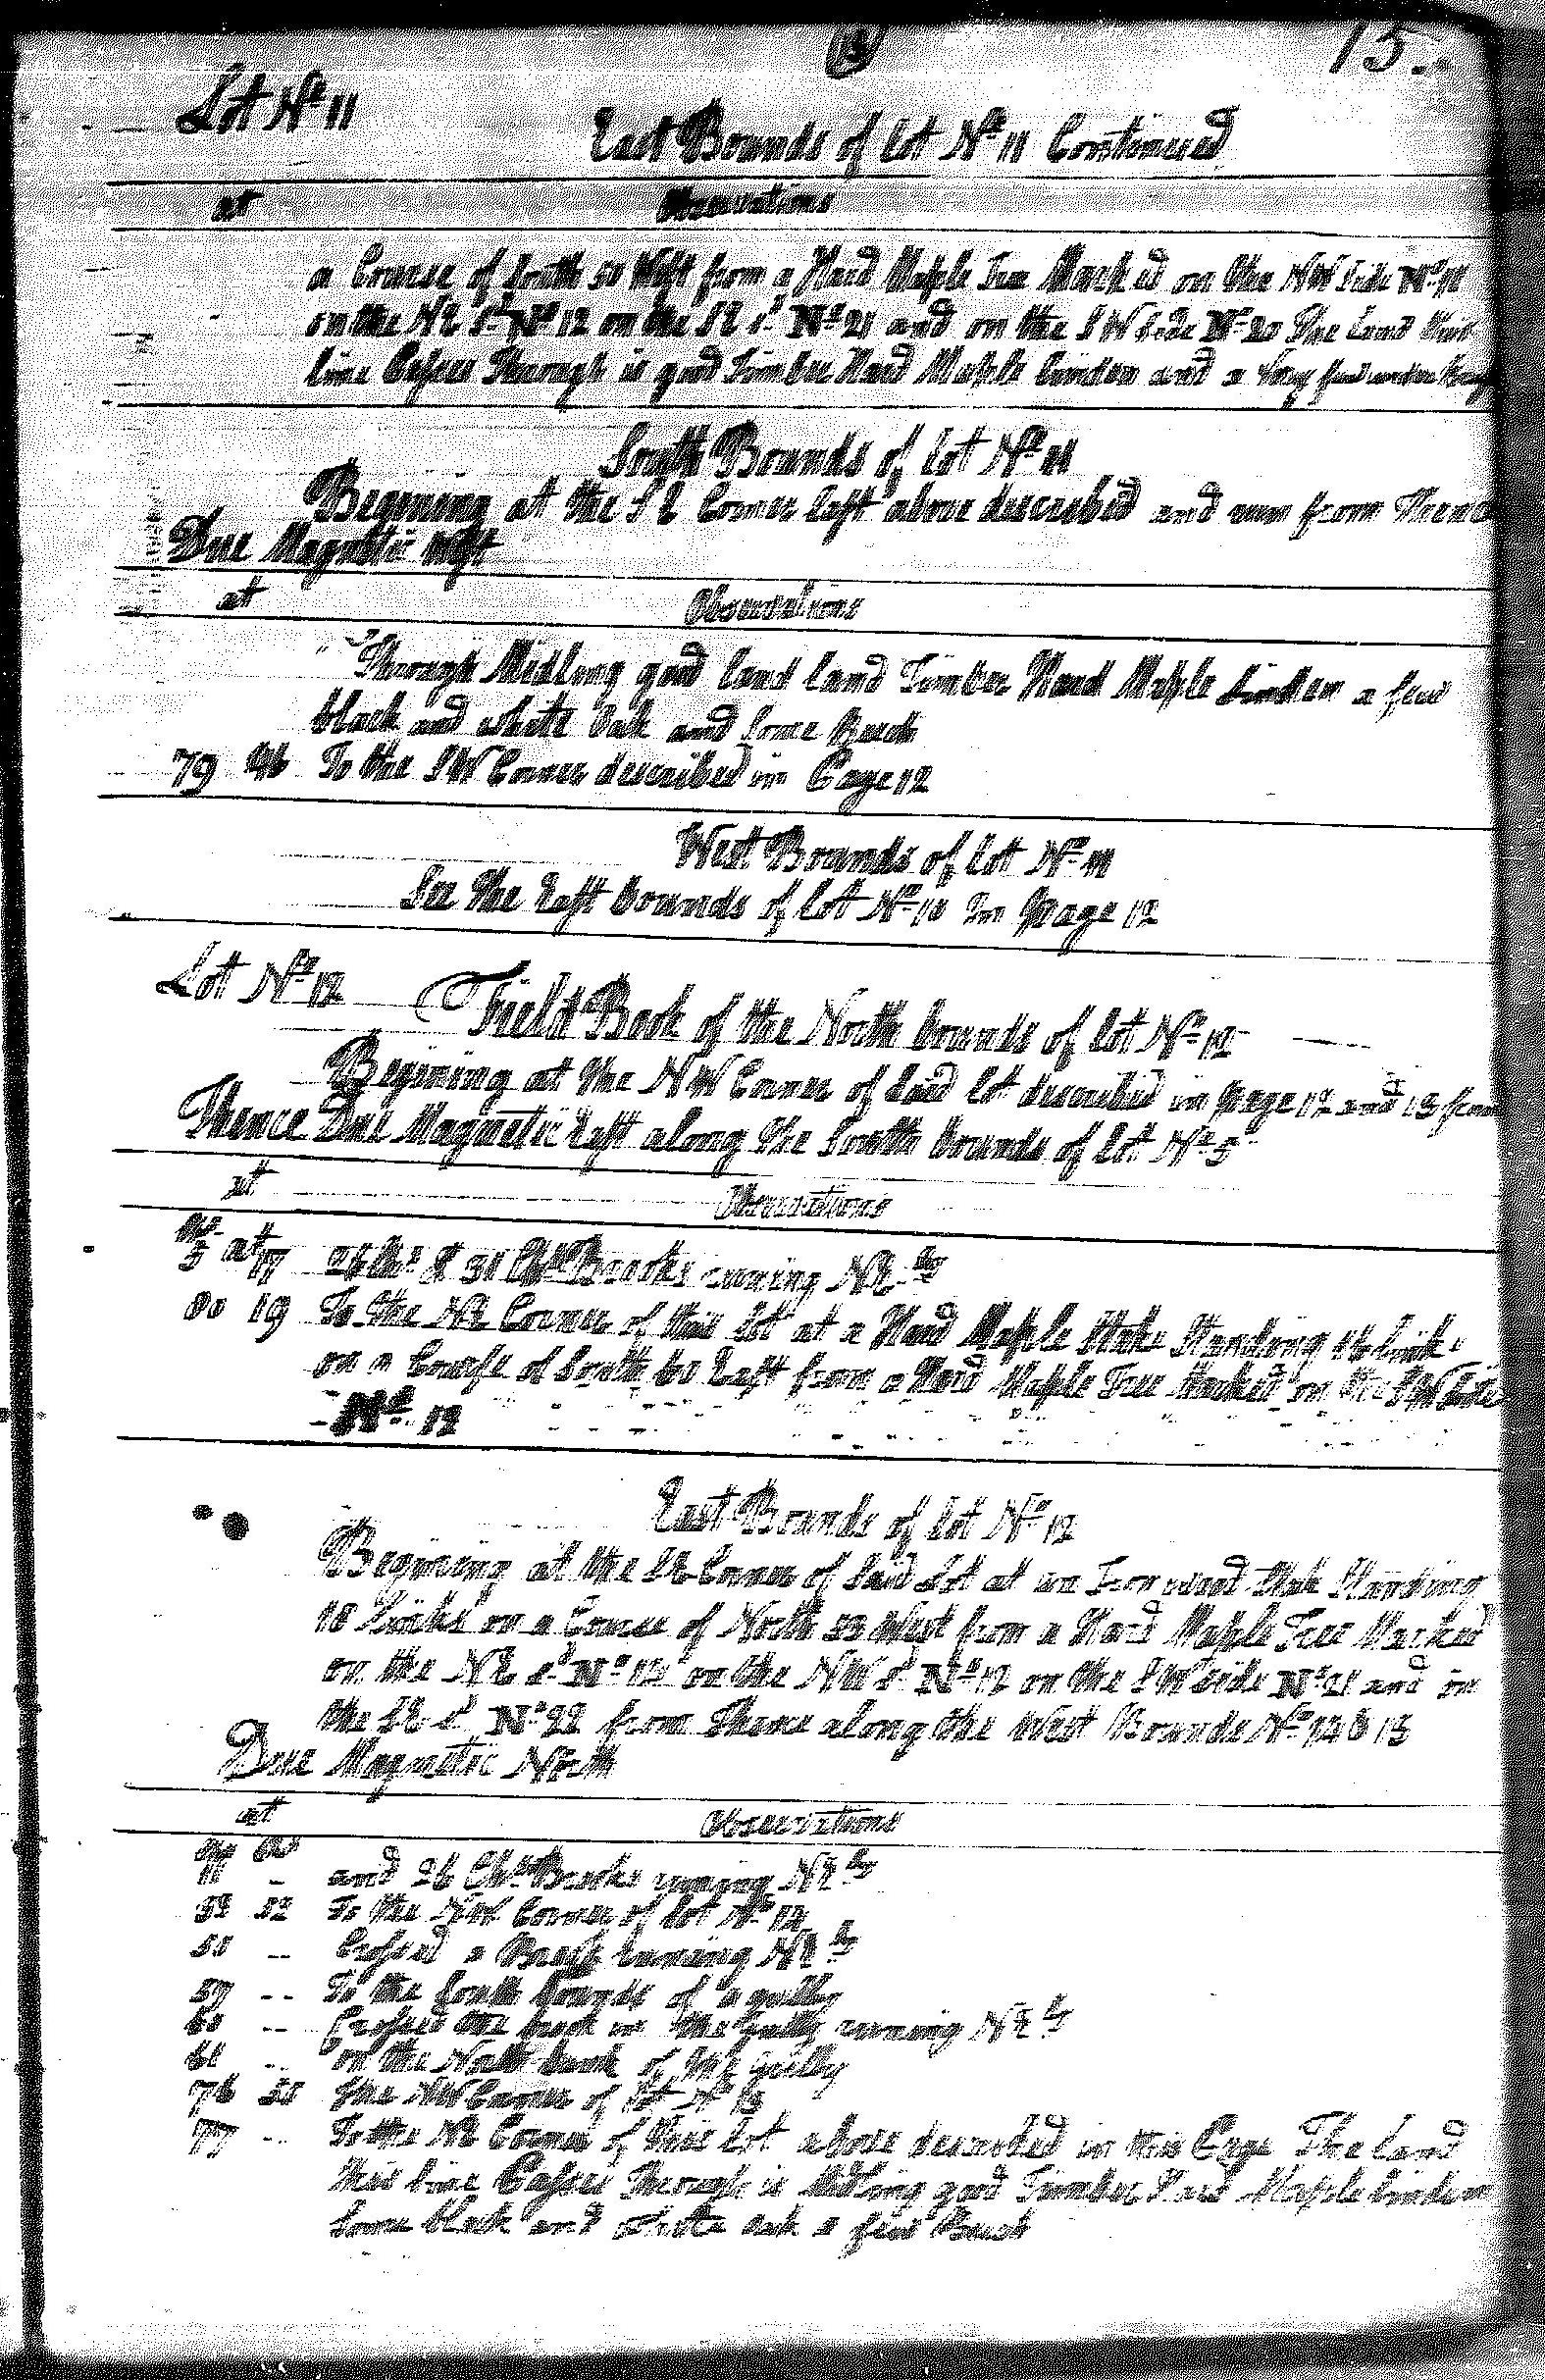 15.
Lot No 11
East Bounds of lot No 11 Continued
at Observations
a Course of South 50 West from a Hard Maple Tree Marked on the NW Side No 11
on the NE Sd No 12 on the SE Sd No 21 and on the SW Side No 20 The Land this
line Passes Through is good Timber Hard Maple linden and a very few under
South Bounds of lot No 11
Begining at the SE Corner last above described and run from Thence
Due Magnetic West
at Observations
Through Midling good land land Timber Hard Maple linden a few
black and white Oak and Some Beech
79 To the SW Corner described in Page 12
West Bounds of lot No 11
See The East bounds of lot No 10 In Page 12
Lot No 12 Field Book of the North bounds of lot No 12
Begining at the NW Corner of Said lot described in page 12 and 13 from
Thence Due Magnetic East along the South bounds of lot No 5
at Observations
5 at 17 & 31 Chs Brooks running NE ly
80 19 To the NE Corner of this lot at a Hard Maple Stake Standing 16 links
on a Course of South 60 East from a Hard Maple Tree Marked on the SW Side
No 12
East Bounds of lot No 12
Begining at the SE Corner of Said Lot at an Iron wood Stake Standing
18 Links on a Course of North 33 West from a Hard Maple Tree Marked
on the NE Sd No on the NW Sd No 12 on the SW Side No 21 and on
the SE Sd No 22 from Thence along the West Bounds No 14 & 13
Due Magnetic North
at Observations
11 - and 26 Chs Brooks running NE ly
52 To the NW Corner of lot No
-- Crossed a Brook running NE ly
57 -- To the South bounds of a gully
60 -- Crossed the brook in the Gully running NE ly
61 -- on the North bank of the gully
76 55 The NW Corner of lot No 13
77 -- To the NE Corner of this Lot above described in this Page The Land
this line Passes Through is Midling good Timber Hard Maple linden
Some black and white oak a few Beech